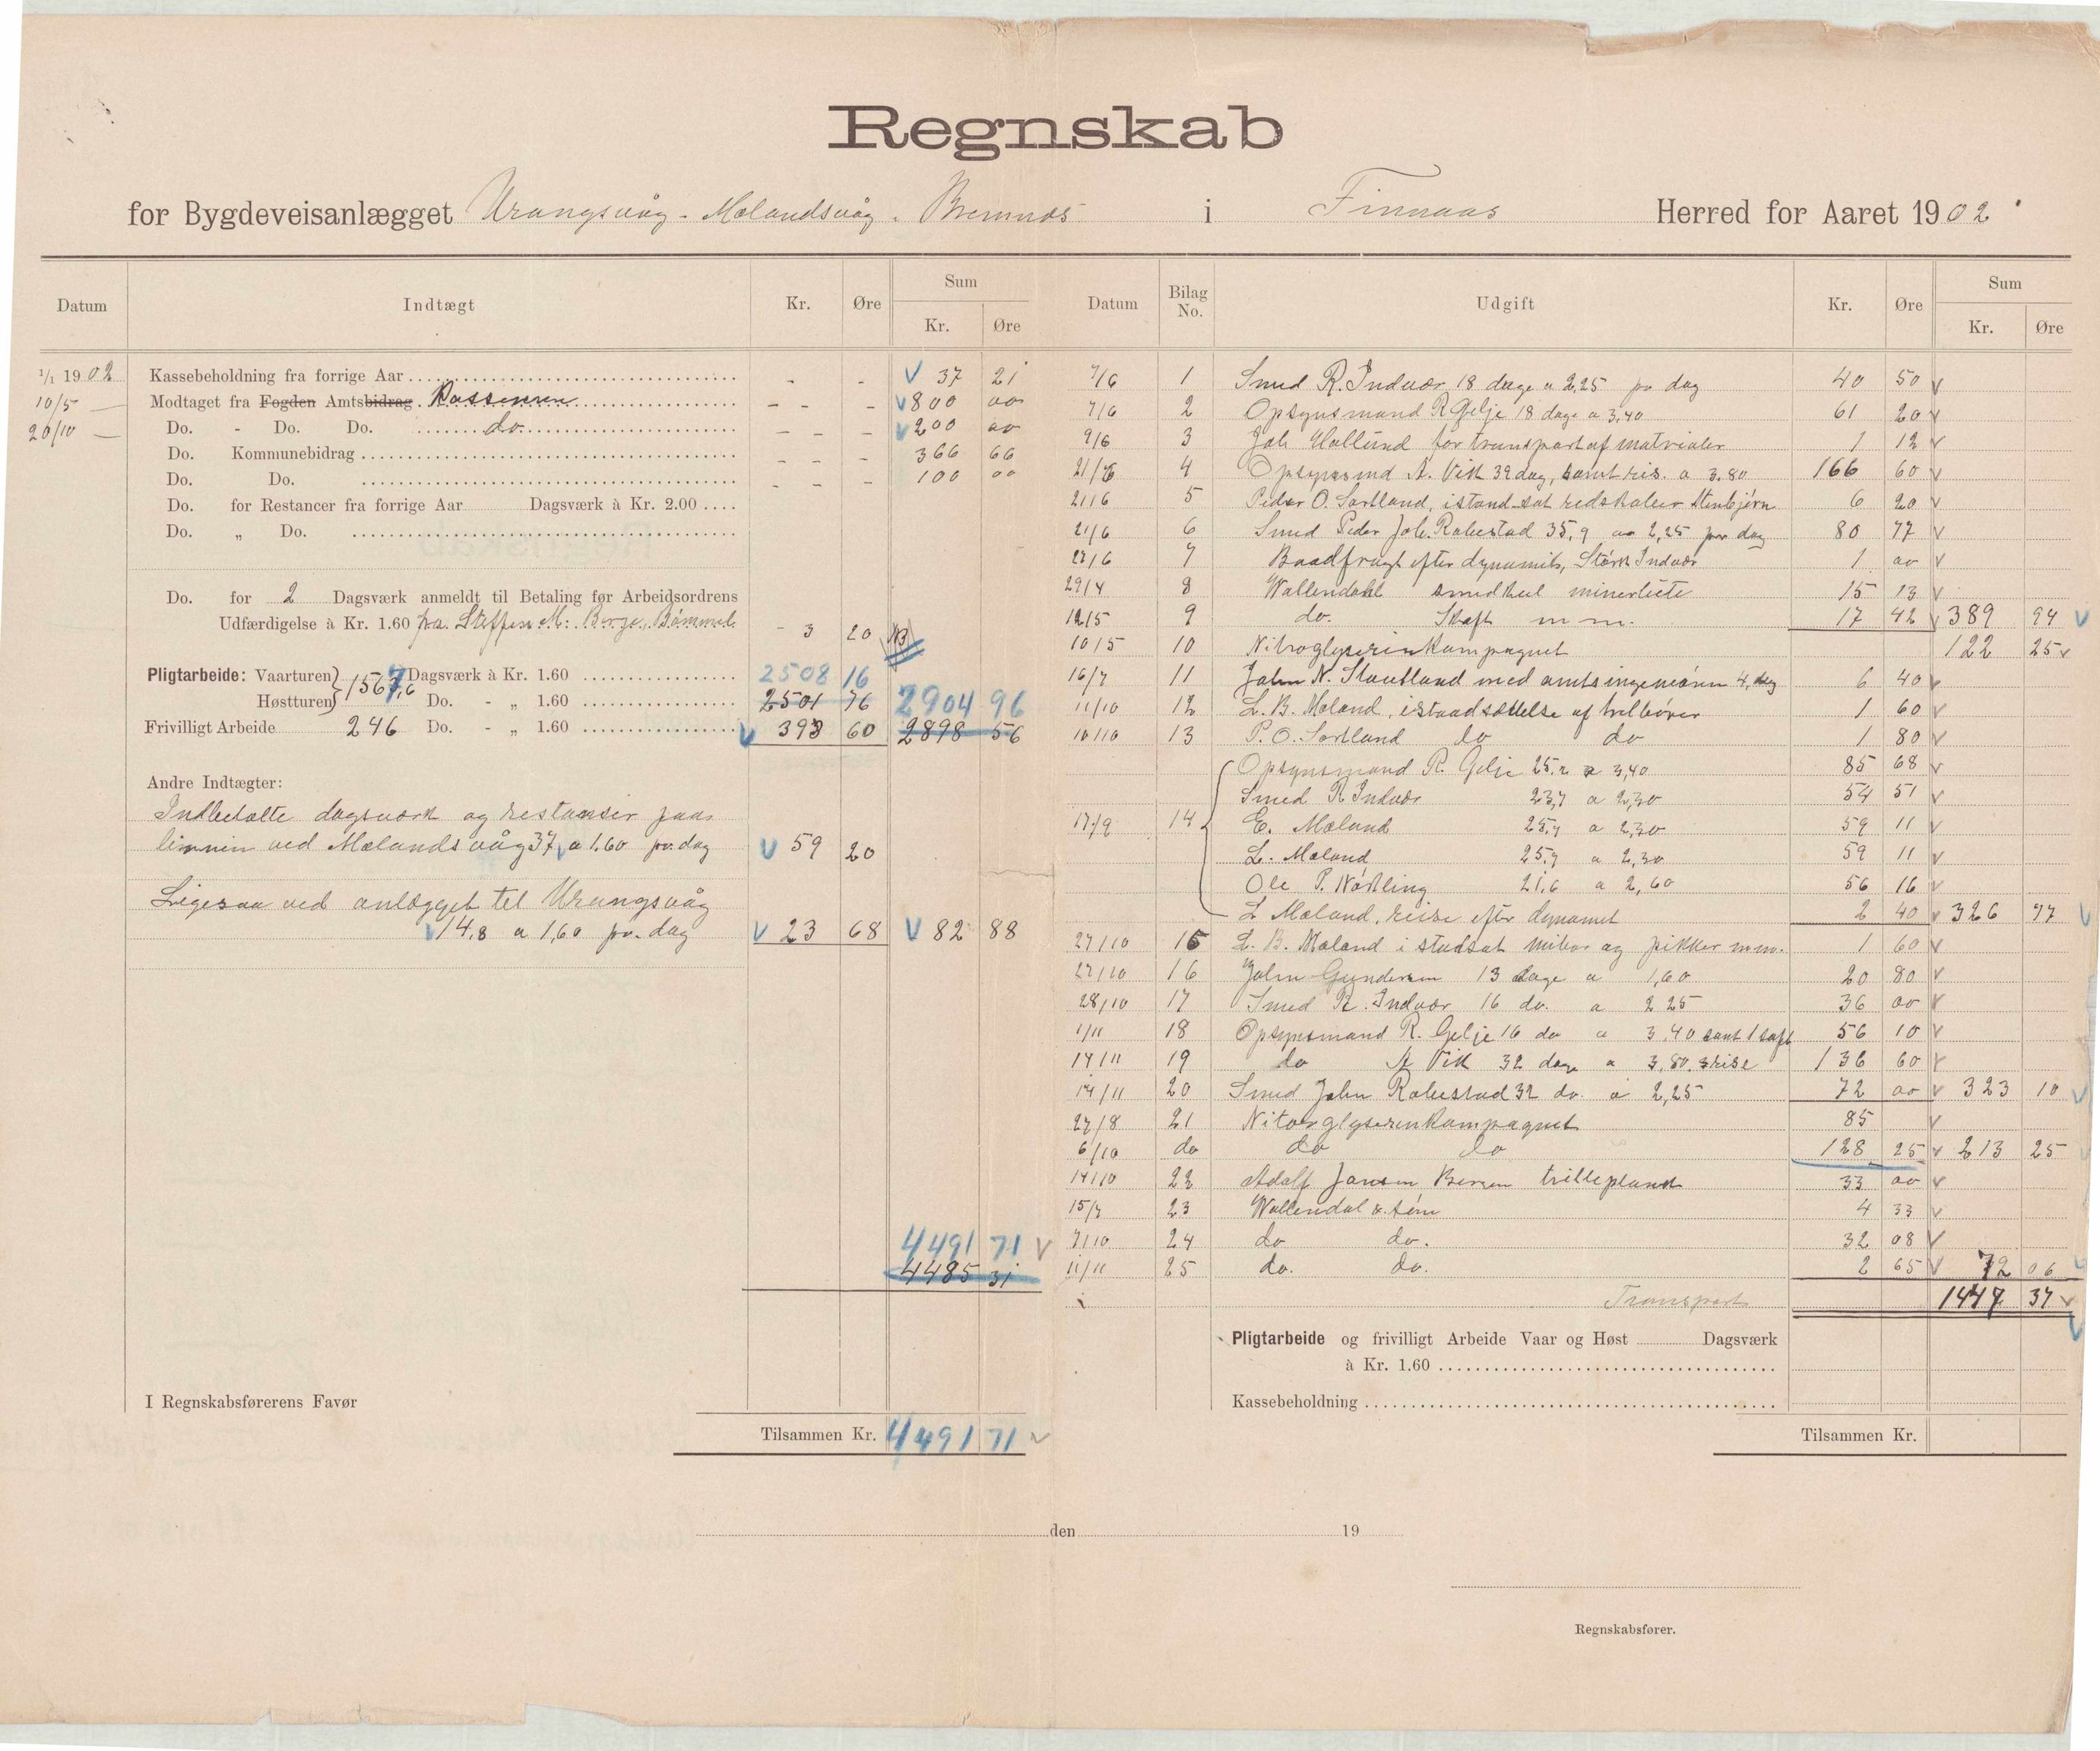 Regnskab
for Bygdeveisanlægget Urangsvåg - Mælandsvåg - Bremnes i Finnaas Herred for Aaret 1902
Datum Indtægt Kr. Øre Sum Kr. Øre
1/1 1902 Kassebeholdning fra forrige Aar - - 37 21
10/5 — Modtaget fra Fogden Amtsbidrag Kassereren - - - 800 00
20/10 — Do. - Do. Do. do. - - - 200 00
Do. Kommunebidrag - - - 366 66
Do. Do. - - - 100 00
Do. for Restancer fra forrige Aar Dagsværk à Kr. 2.00
Do. „ Do.
Do. for 2 Dagsværk anmeldt til Betaling før Arbeidsordrens
Udfærdigelse à Kr. 1.60 fra Steffen M. Børge, Bømmel - 3 20 NB
Pligtarbeide: Vaarturen 1567,6 Dagsværk à Kr. 1.60 2508 16
Høstturen Do. - „ 1.60 2501 76 2904 96
Frivilligt Arbeide 246 Do. - „ 1.60 393 60 2898 56
Andre Indtægter:
Indbetalte dagsværk og restanser paa
linnien ved Mælandsvåg 37 a 1.60 pr. dag 59 20
Ligesaa ved anlægget til Urangsvåg
14,8 a 1,60 pr. dag 23 68 82 88
4491 71
4485 31
I Regnskabsførerens Favør
Tilsammen Kr. 4491 71
Datum Bilag No. Udgift Kr. Øre Sum Kr. Øre
7/6 1 Smed R. Indvær 18 dage a 2,25 pr dag 40 50
7/6 2 Opsynsmand R Gjelje 18 dage a 3,40 61 20
9/6 3 Joh Hallund for transport af matrialer 1 12
21/6 4 Opsynsmd A. Vik 39 dag, samt reis. a 3.80 166 60
21/6 5 Peder O. Sortland, istand sat redskaber Stenbjørn 6 20
21/6 6 Smed Peder Joh. Rabestad 35,9 a 2,25 pr dag 80 77
22/6 7 Baadfragt efter dynamit, Størk Indvær 1 00
29/4 8 Wallendahl smedkul minerlüte 15 13
12/5 9 do. Skaft m m. 17 42 389 94
10/5 10 Nitroglyserinkompagnet 122 25
16/7 11 John N. Stautland med amtsingeniøren 4, dag 6 40
11/10 12 L. B. Mæland, istandsættelse af trilbører 1 60
10/10 13 P. O. Sortland do do 1 80
Opsynsmand R. Gelje 25,2 a 3,40 85 68
Smed R Indvær 23,7 a 2,30 54 51
17/9 14 E. Mæland 25,7 a 2,30 59 11
L. Mæland 25,7 a 2,30 59 11
Ole P. Nørling 21,6 a 2,60 56 16
L Mæland, reise efter dynamit 2 40 326 77
27/10 15 L. B. Mæland i standsat miner og pikker m.m. 1 60
27/10 16 John Gundersen 13 dage a 1,60 20 80
28/10 17 Smed R. Indvær 16 do. a 2 25 36 00
1/11 18 Opsynsmand R. Gelje 16 do a 3,40 samt 1 saft 56 10
14/11 19 do A Vik 32 dage a 3,80. reise 136 60
14/11 20 Smed John Rabestad 32 do. a 2,25 72 00 323 10
27/8 21 Nitorglyserinkompagnet 85
6/10 do do do 128 25 213 25
14/10 22 Adolf Jansen Bergen trilleplank 33 00
15/7 23 Wallendal & Søn 4 33
7/10 24 do do. 32 08
11/11 25 do. do. 2 65 72 06
Transport 1447 37
Pligtarbeide og frivilligt Arbeide Vaar og Høst Dagsværk
à Kr. 1.60
Kassebeholdning
Tilsammen Kr.
den 19
Regnskabsfører.